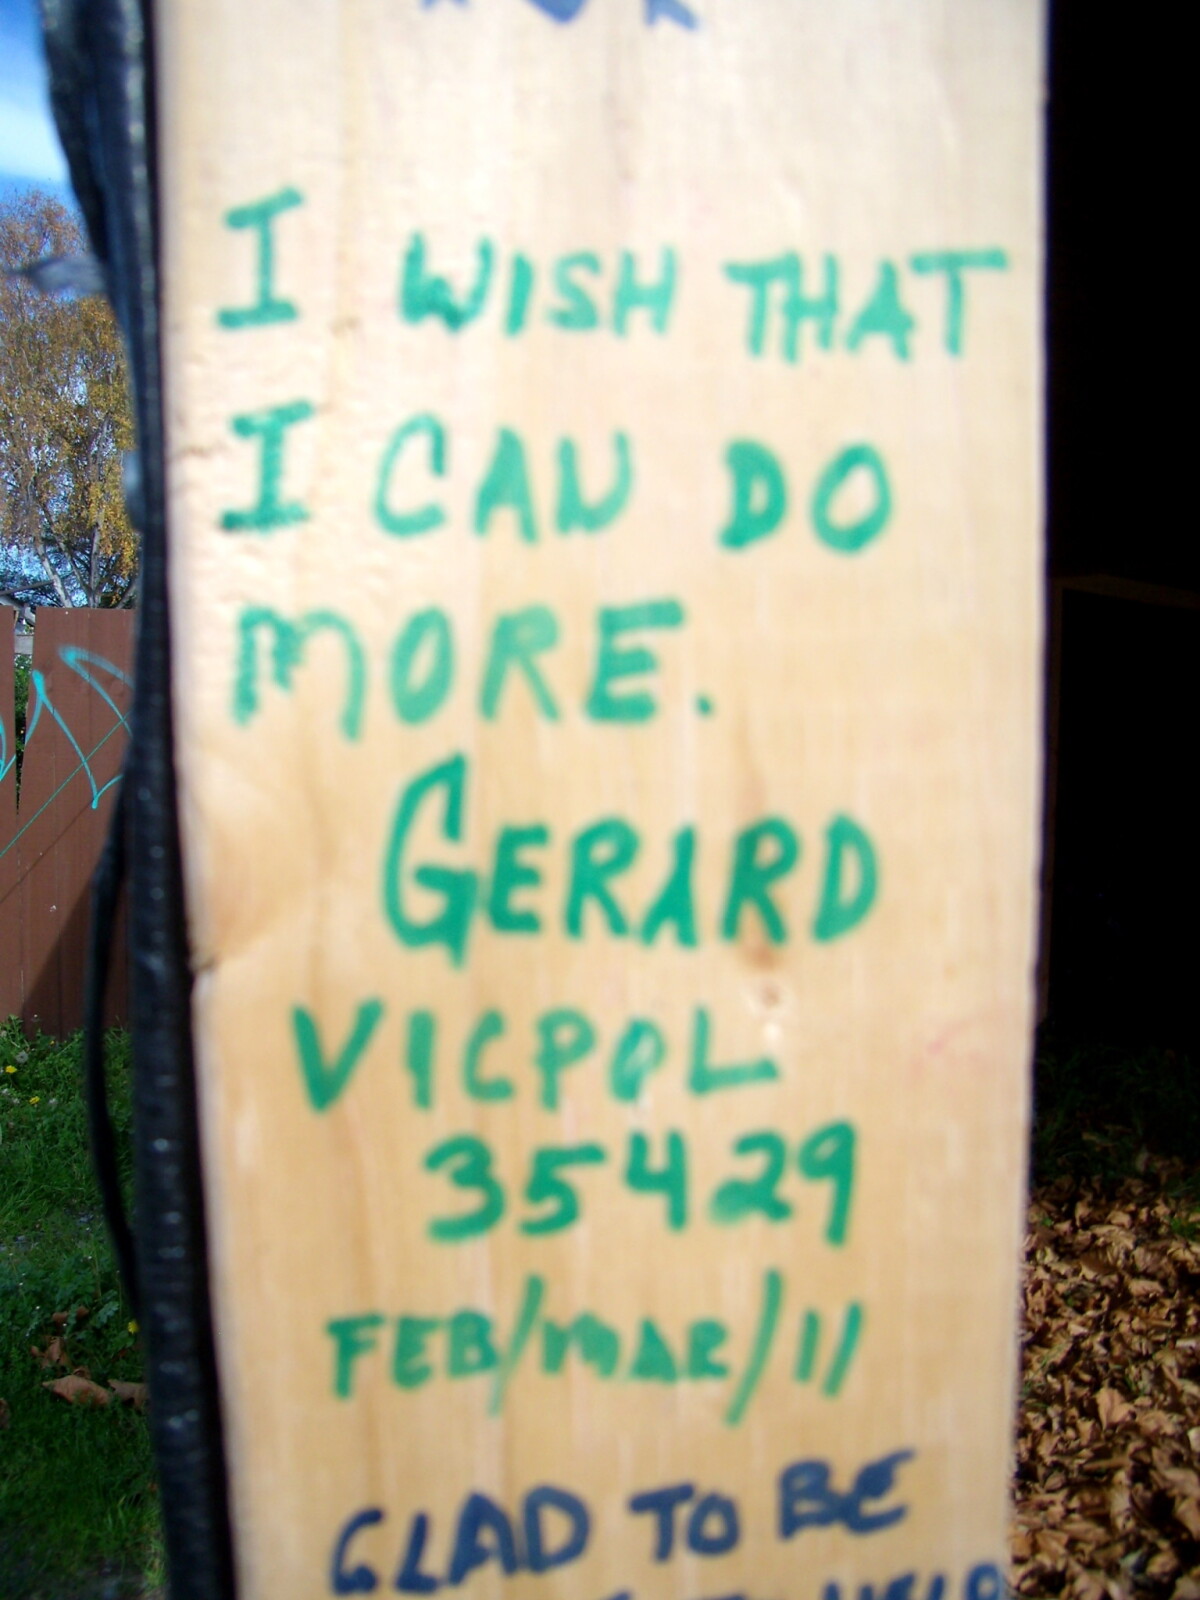 I WISH THAT
I CAN DO
MORE.
GERARD
VICPOL
35429
FEB/MAR/11
GLAD TO BE
TO HELP